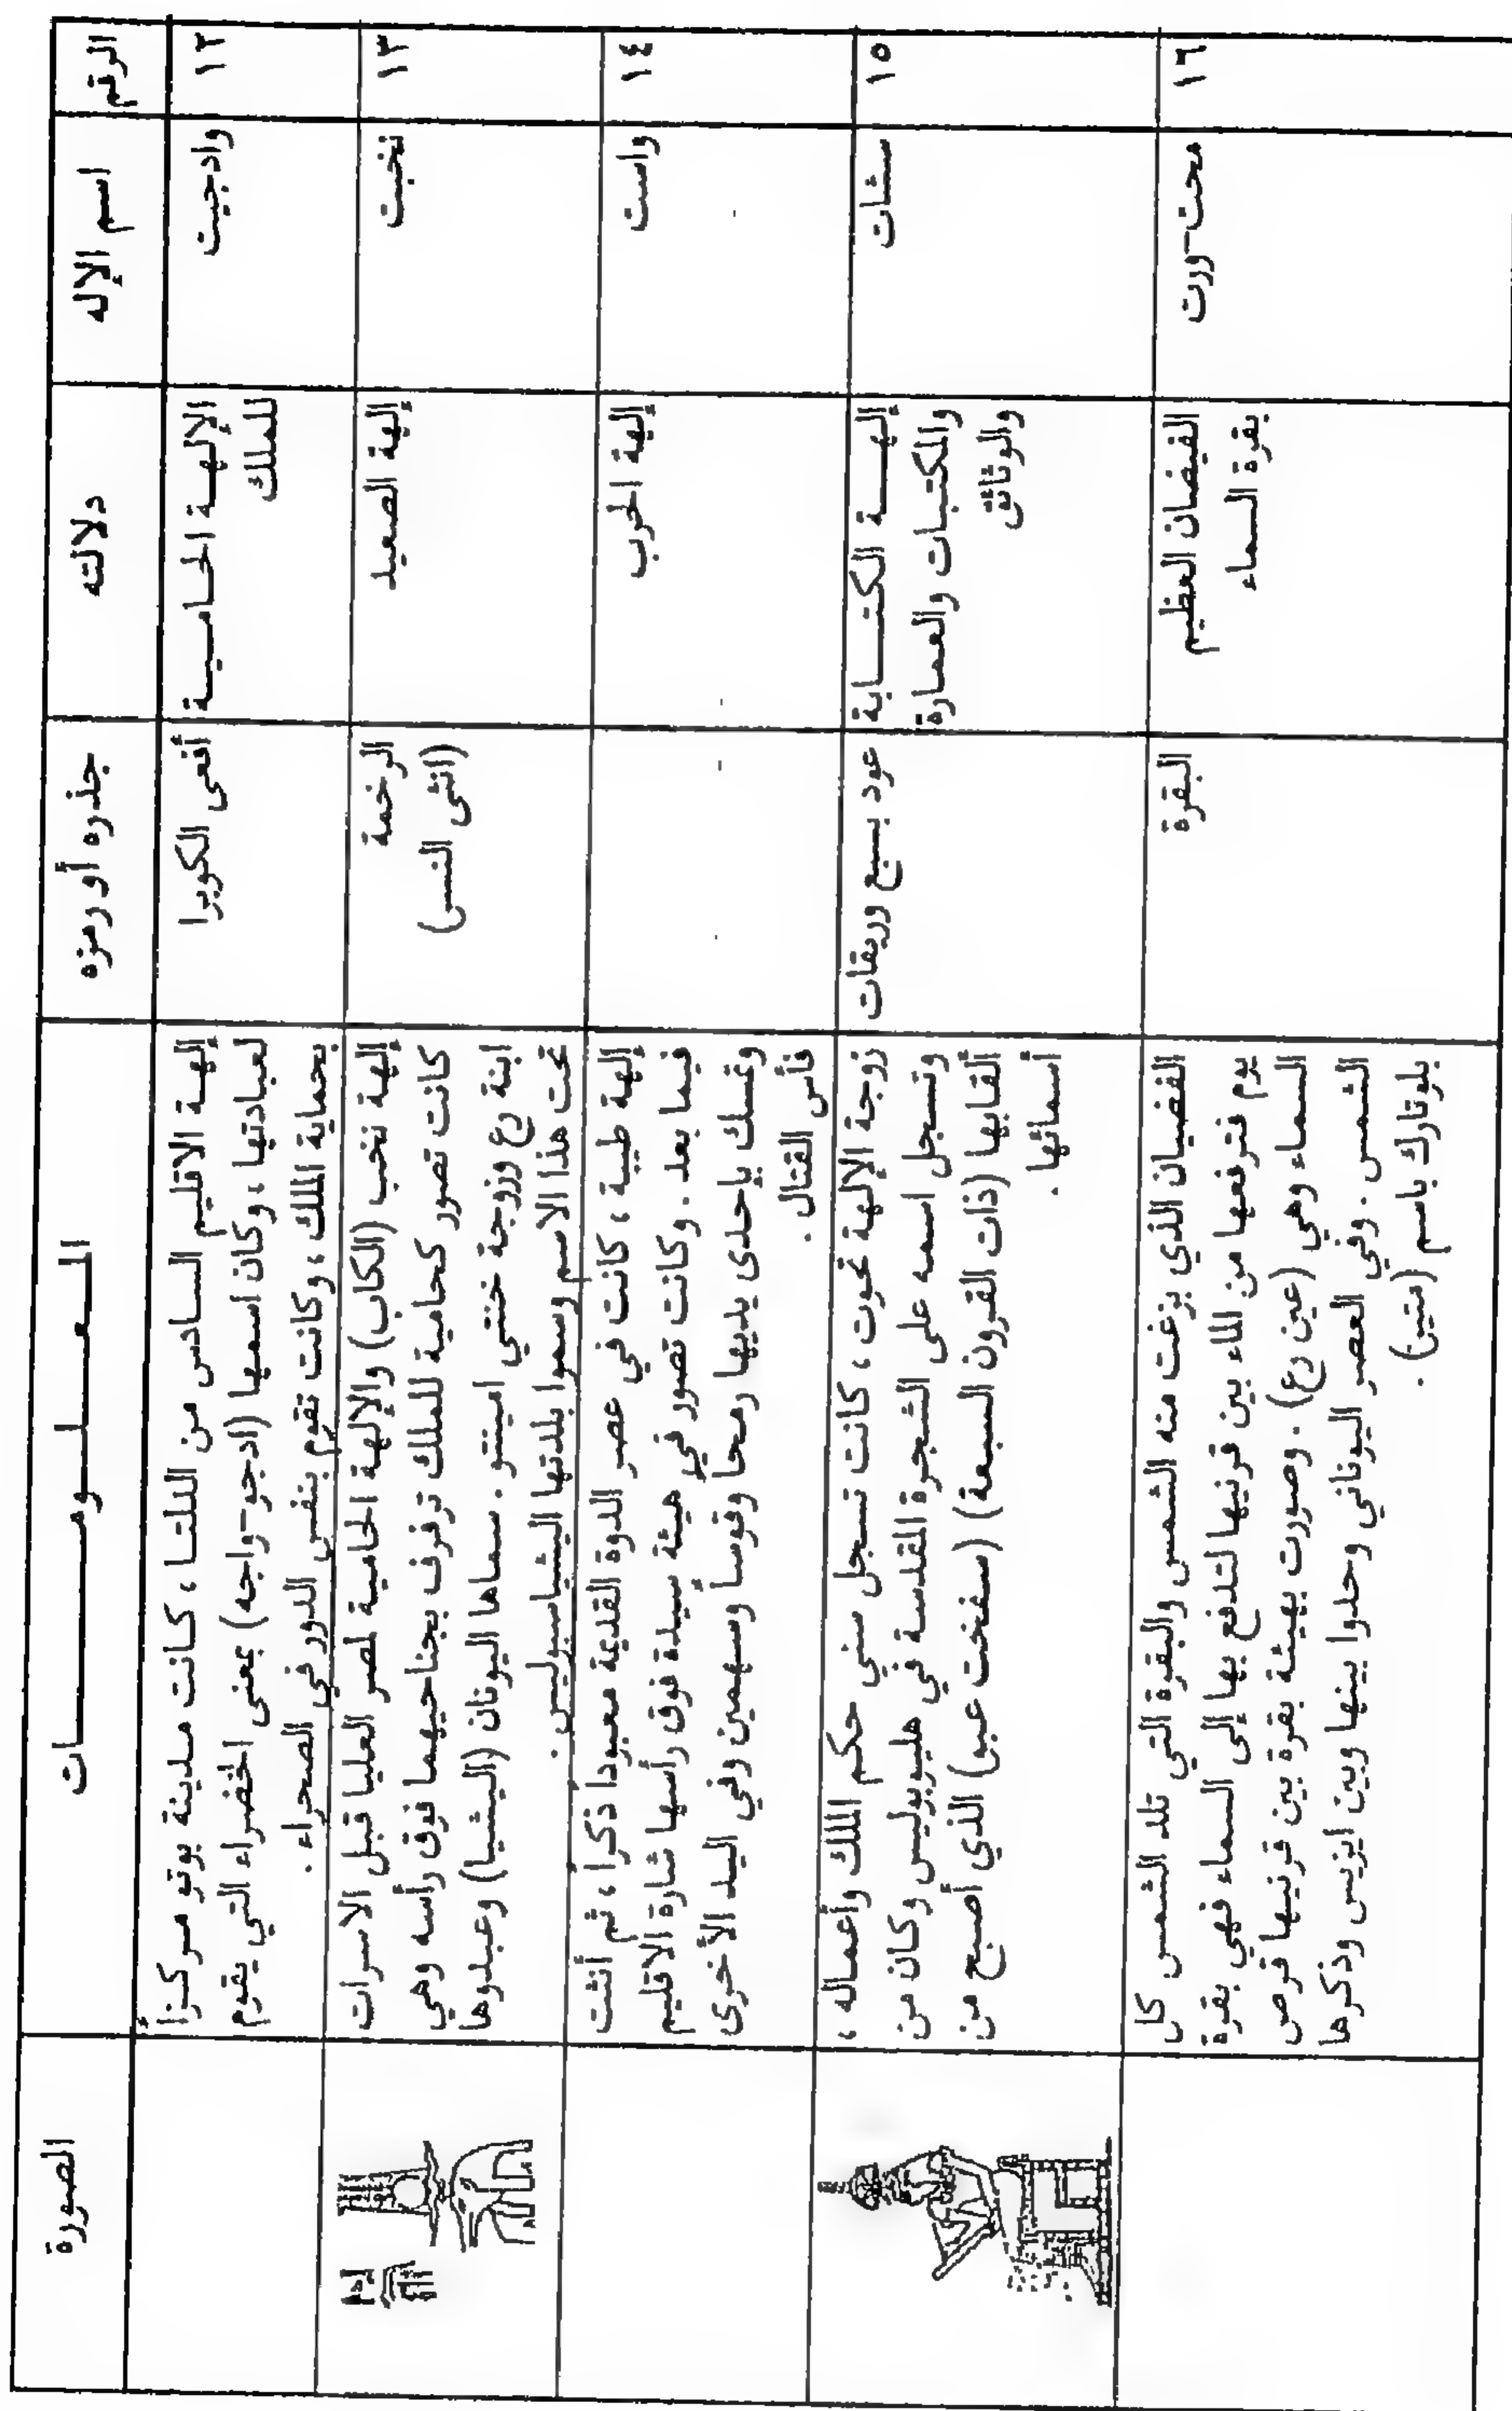 الرقم
اسم الإله
دلالته
جذره أو رمزه
المعلومات
الصورة
١٢
وادجيت
الإلهة الحامية
للملك
أفعى الكوبرا
إلهة الاقليم السادس من الدلتا ، كانت مدينة بوتو مركزاً
لعبادتها ، وكان اسمها (ادجو-واجه) بمعنى الخضراء التي يقوم
بحماية الملك ، وكانت تقوم بنفس الدور في الصحراء .
١٣
نخبت
إلهة الصعيد
الرخمة
(انثى النسر)
إلهة نخب (الكاب) والإلهة الحامية لمصر العليا قبل الاسرات
كانت تصور كحامية للملك ترفرف بجناحيهما فوق رأسه وهي
ابنة رع وزوجة خنتي امينتو . سماها اليونان (اليثيا) وعبدوها
تحت هذا الاسم وسموا بلدتها اليثياسبوليس .
١٤
واست
إلهة الحرب
إلهة طيبة ، كانت في عصر الدوة القديمة معبودا ذكرا ، ثم أنثت
فيما بعد . وكانت تصور في هيئة سيدة فوق رأسها شارة الاقليم
وتمسك بإحدى يديها رمحا وقوسا وسهمين وفي اليد الأخرى
فأس القتال .
١٥
سشات
إلهة الكتابة
والمكتبات والعمارة
والوثائق
عود بسبع وريقات
زوجة الإلهة تحوت ، كانت تسجل سني حكم الملك وأعماله ،
وتسجل اسمه على الشجرة المقدسة في هليوبوليس وكان من
ألقابها (ذات القرون السبعة) (سفخت عبو) الذي أصبح من
أسمائها .
١٦
محت-ورت
الفيضان العظيم
بقرة السماء
البقرة
الفضيان الذي بزغت منه الشمس والبقرة التي تلد الشمس كل
يوم فترفعها من الماء بين قرنيها لتدفع بها إلى السماء فهي بقرة
السماء وهي (عين رع) . وصورت بهيئة بقرة بين قرنيها قرص
الشمس . وفي العصر اليوناني وحدوا بينها وبين ايزيس وذكرها
بلوتارك باسم (متير) .